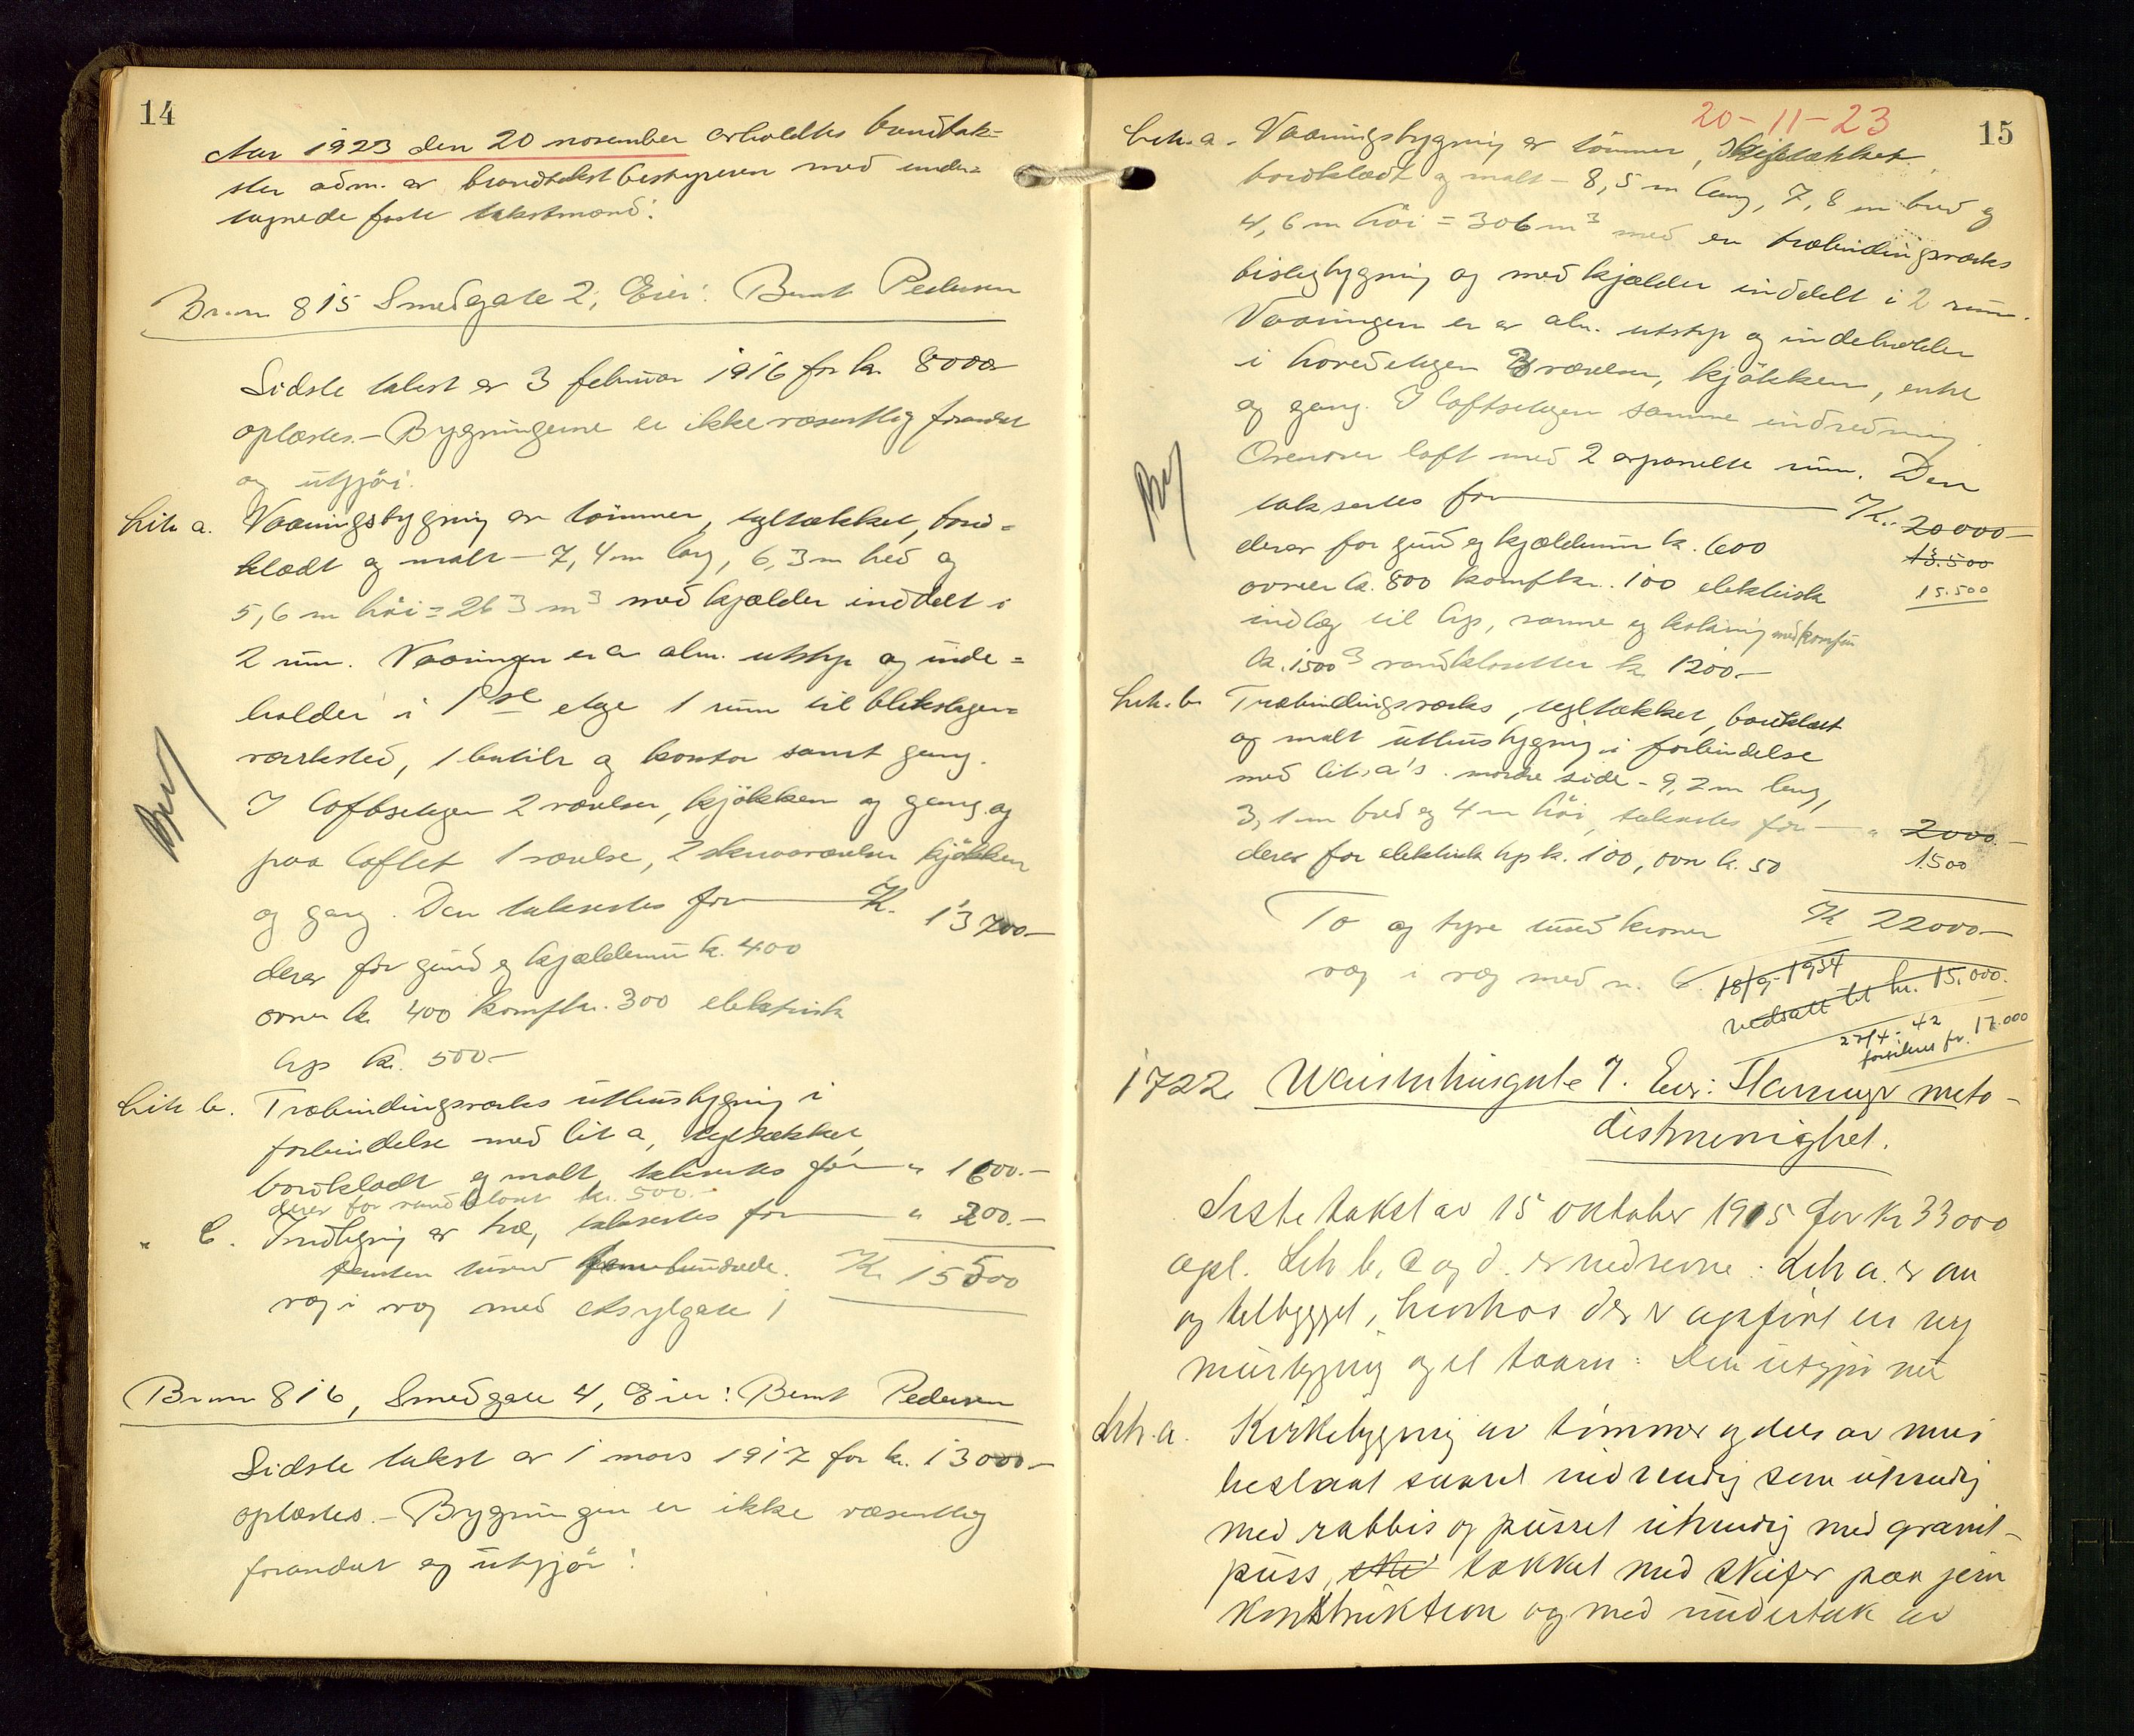 14
Aar 1923 den 20 november avholdtes brandtak-
ster adm. av brandtakstbestyreren med under-
tegnede faste takstmænd:
Br.nr 815 Smedgate 2, Eier: Bernt Pedersen
Sidste takst av 3 februar 1916 for kr. 8000
oplæstes. – Bygningerne er ikke væsentlig forandret
og utgjör:
Litr a. Vaaningsbygning av tömmer, tegltækket, bord-
klædt og malt – 7,4 m lang, 6,3 m bred og
5,6 m höi = 263 m³ med kjælder inddelt i
2 rum. Vaaningen er av alm. utstyr og inde-
holder i 1ste etage 1 rum til blikslager-
værksted, 1 butik og kontor samt gang.
I loftsetagen 2 værelser, kjökken og gang og
paa loftet 1 værelse, 2 skraaværelser kjökken
og gang. Den taksertes for — K. 13700–
derav for grund og kjælderrum k. 400
ovner kr. 400 komf kr. 300 elektrisk
lys kr. 500–
Litr b. Træbindingsverks uthusbygning i
forbindelse med lit a, tegltækket,
bordklædt og malt, taksertes for — " 1600.–
derav for vandklosett kr. 500.–
" C. Indhegning av træ, taksertes for — " 200.–
femten tusind femhundrede. Kr 15500
væg i væg med Asylgate 1
Br.nr 816, Smedgate 4, Eier: Bernt Pedersen
Sidste takst av 1 mars 1917 for kr. 13000–
oplæstes. – Bygningen er ikke væsentlig
forandret og utgjör:
20-11-23
15
Litr. a. Vaaningsbygning av tömmer, skifertækket,
bordklædt og malt – 8,5 m lang, 7,8 m bred og
4,6 m höi = 306 m³ med en træbindingsverks
bislagbygning og med kjælder inddelt i 2 rum.
Vaaningen er av alm. utstyr og indeholder
i hovedetagen 3 værelser, kjökken, entre
og gang. I loftsetagen samme indredning.
Ovenover loft med 2 avpanelte rum. Den
taksertes for — K. 20000–
derav for grund og kjælderrum k. 600 13.500
ovner k. 800 komf kr. 100 elektrisk 15.500
indlæg til lys, varme og kokning med komfur
kr. 1500 3 vandklosetter kr 1200.–
Litr. b. Træbindingsverks, tegltækket, bordklædt
og malt uthusbygning i forbindelse
med lit. a's nordre side – 9,2 m lang,
3,1 m bred og 4 m höi, taksertes for — " 2000.–
derav for elektrisk lys k. 100, ovn k. 50 1500
To og tyve tusind kroner Kr 22000–
væg i væg med n. 6. 18/9-1934
nedsatt til kr. 15.000.
27/4-42
forsikres for 17.000
1722 Waisenhusgate 7. Eier: Stavanger meto-
distmenighet.
Siste takst av 15 oktober 1915 for kr 33000
opl. Litr b, c og d. er nedrevne: Litr a. er om
og tilbygget, hvorhos der er opført en ny
murbygning og et taarn: Den utgjör nu
Litr. a. Kirkebygning av tömmer og dels av mur
beslaat saavel indvendig som utvendig
med rabbis og pusset utvendig med granit-
puss, ski tækket med skifer paa jern
konstruktion og med undertak av